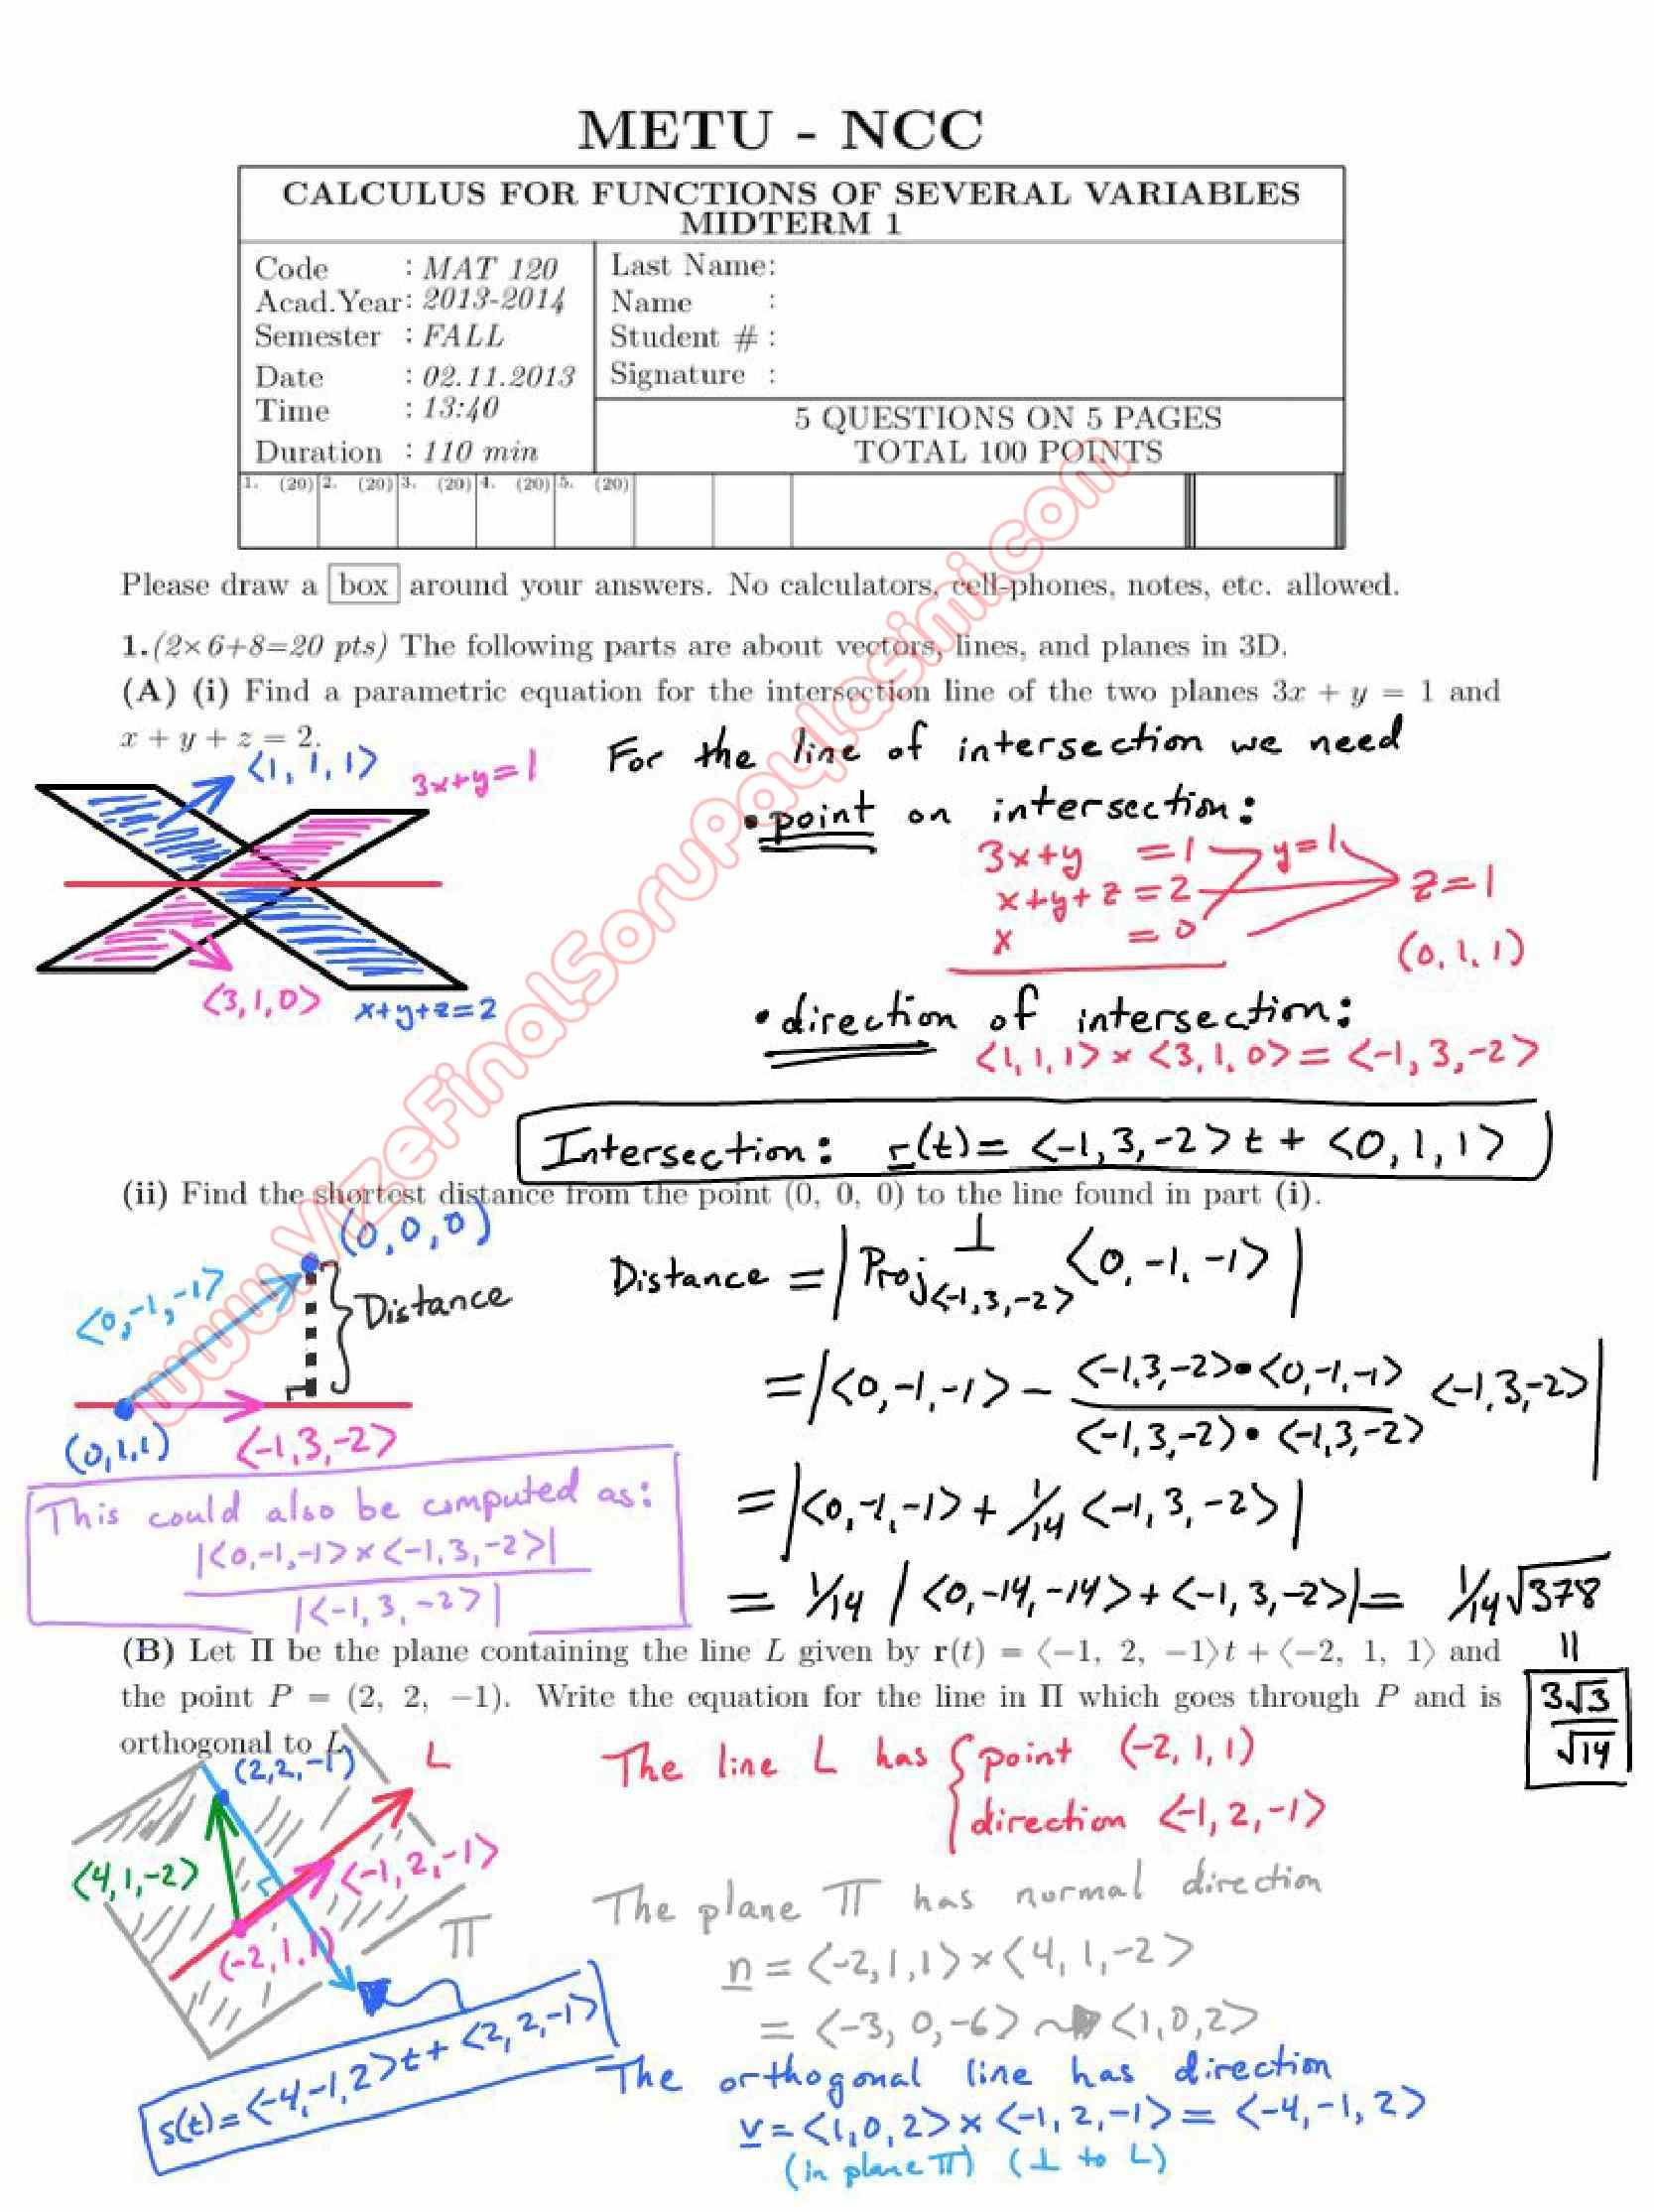 METU - NCC
CALCULUS FOR FUNCTIONS OF SEVERAL VARIABLES
MIDTERM 1
Code : MAT 120
Acad.Year: 2013-2014
Semester : FALL
Date : 02.11.2013
Time : 13:40
Duration : 110 min
Last Name:
Name :
Student # :
Signature :
5 QUESTIONS ON 5 PAGES
TOTAL 100 POINTS
1. (20) 2. (20) 3. (20) 4. (20) 5. (20)
Please draw a box around your answers. No calculators, cell-phones, notes, etc. allowed.
1.(2×6+8=20 pts) The following parts are about vectors, lines, and planes in 3D.
(A) (i) Find a parametric equation for the intersection line of the two planes 3x + y = 1 and
x + y + z = 2.
⟨1, 1, 1⟩
3x+y=1
⟨3,1,0⟩
x+y+z=2
For the line of intersection we need
• point on intersection:
3x+y =1
x+y+z=2
x =0
y=1
z=1
(0,1,1)
• direction of intersection:
⟨1,1,1⟩×⟨3,1,0⟩=⟨-1,3,-2⟩
Intersection: r(t)=⟨-1,3,-2⟩t+⟨0,1,1⟩
(ii) Find the shortest distance from the point (0, 0, 0) to the line found in part (i).
(0,0,0)
⟨0,-1,-1⟩
Distance
(0,1,1)
⟨-1,3,-2⟩
Distance =|Proj⊥⟨-1,3,-2⟩ ⟨0,-1,-1⟩|
=|⟨0,-1,-1⟩- ⟨-1,3,-2⟩•⟨0,-1,-1⟩ / ⟨-1,3,-2⟩•⟨-1,3,-2⟩ ⟨-1,3,-2⟩|
=|⟨0,-1,-1⟩+1/14⟨-1,3,-2⟩|
= 1/14 |⟨0,-14,-14⟩+⟨-1,3,-2⟩|= 1/14√378
=
3√3/√14
This could also be computed as:
|⟨0,-1,-1⟩×⟨-1,3,-2⟩|
|⟨-1,3,-2⟩|
(B) Let Π be the plane containing the line L given by r(t) = ⟨−1, 2, −1⟩t + ⟨−2, 1, 1⟩ and
the point P = (2, 2, −1). Write the equation for the line in Π which goes through P and is
orthogonal to L.
(2,2,-1)
L
⟨4,1,-2⟩
⟨-1,2,-1⟩
(-2,1,1)
Π
s(t)=⟨-4,-1,2⟩t+⟨2,2,-1⟩
The line L has { point (-2,1,1)
direction ⟨-1,2,-1⟩
The plane Π has normal direction
n=⟨-2,1,1⟩×⟨4,1,-2⟩
=⟨-3,0,-6⟩ ~> ⟨1,0,2⟩
The orthogonal line has direction
v=⟨1,0,2⟩×⟨-1,2,-1⟩=⟨-4,-1,2⟩
(in plane Π) (⊥ to L)
www.VizeFinalSoruPaylasimi.com